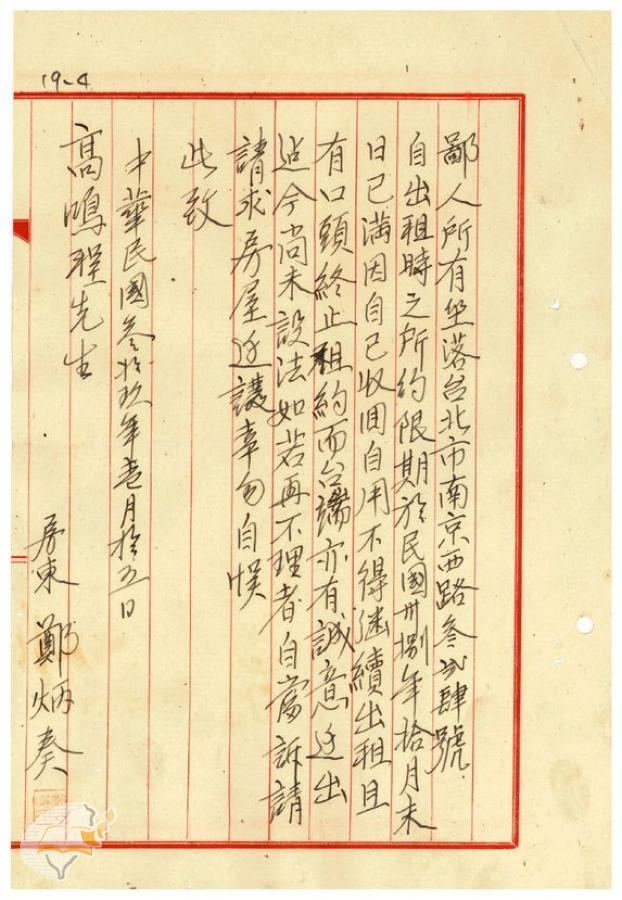 19-4
鄙人所有坐落台北市南京西路叁弍肆號
自出租時之所約限期於民國卅捌年拾月末
日已滿因自己收囬自用不得继續出租且
有口頭終止租約而台端亦有誠意迁出
迨今尚未設法如若再不理者自當訴請
請求房屋迁讓幸勿自悮
此致
中華民國叁拾玖年壹月拾五日
高鳴程先生
房東 鄭炳奏